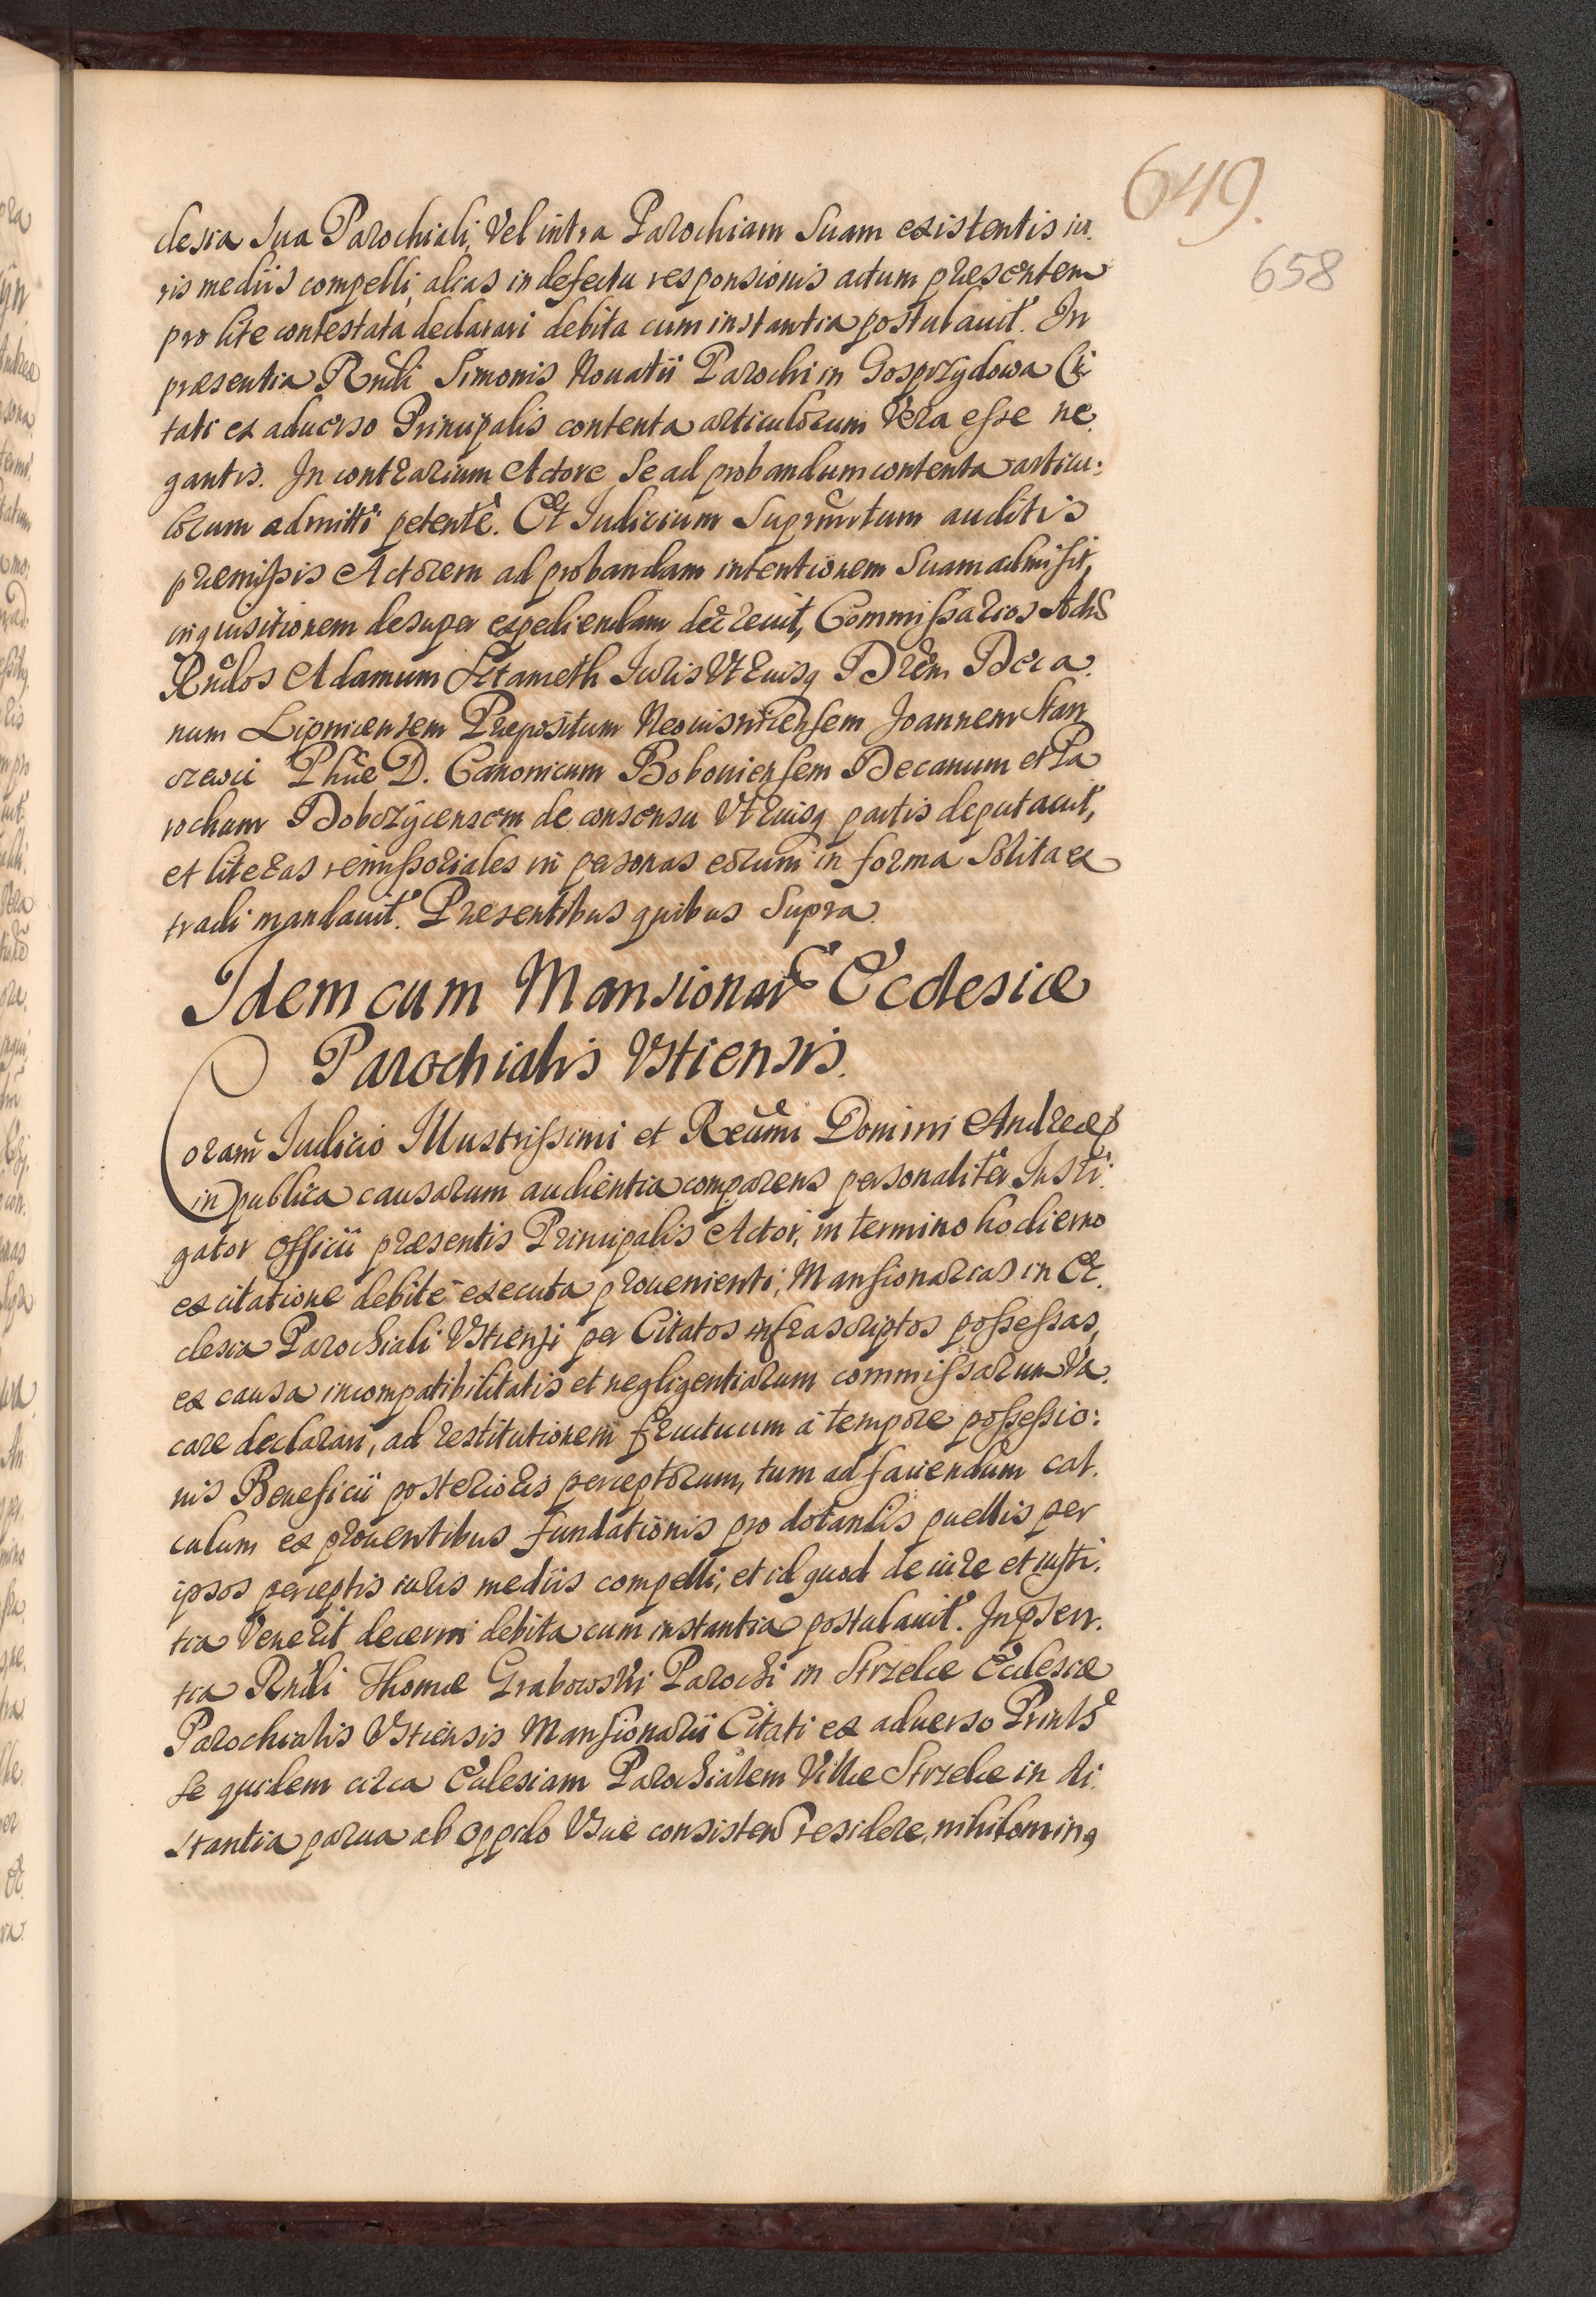 649.
658
clesia sua Parochiali, Vel intra Parochiam Suam existentis iu.
ris mediis compelli, alias in defectu responsionis actum præsentem
pro lite contestata declarari debita cum instantia postulauit. In
præsentia Rndi Simonis Nouatii Parochi in Gosprzydowa Ci
tati ex aduerso Principalis contenta articulorum Vera esse ne.
gantis. In contrarium Actore se ad probandum contenta articu:
lorum admitti petente. Et Iudicium Supranrtum auditis
præmissis Actorem ad probandam intentionem Suam admisit,
inquisitionem desuper expediendam decreuit, Commissarios Adm
Rndos Adamum Iuris Vtriusq Drem Deca
num Lipnicensem Præpositum Neouisniciensem Joannem
Phiæ D. Canonicum Boboviensem Decanum et Pa
rochum Dobczycensem de consensu Vtriusq partis deputauit,
et literas remissoriales in personas eorum in forma Solita ex
tradi mandauit. Præsentibus quibus Supra.
Idem cum Mansionar Ecclesiæ
Parochialis Vstiensis.
Coram Iudicio Illustrissimi et Reumi Domini Andreæ
in publica causarum audientia comparens personaliter Insti:
gator Officii præsentis Principalis Actor, in termino hodierno
ex citatione debite executa prouenienti, Mansionarias in Ec.
clesia Parochiali Vstiensi per Citatos infrascriptos possessas,
ex causa incompatibilitatis et negligentiarum commissarum Va.
care declarari, ad restitutionem fructuum a tempore possessio:
nis Beneficii posterioris perceptorum, tum ad faciendum cal.
culum ex prouentibus fundationis pro dotandis puellis per
ipsos perceptis iuris mediis compelli, et id quod de iure et iusti.
tia Venerit decerni debita cum instantia postulauit. In pñsen.
tia Rndi Thomæ Grabowski Parochi in Strzelce Ecclesiæ
Parochialis Vstiensis Mansionarii Citati ex aduerso Prinlis
se quidem circa Ecclesiam Parochialem Villæ Strzelce in di.
stantia parua ab oppido Vscie consisten residere, nihilominq